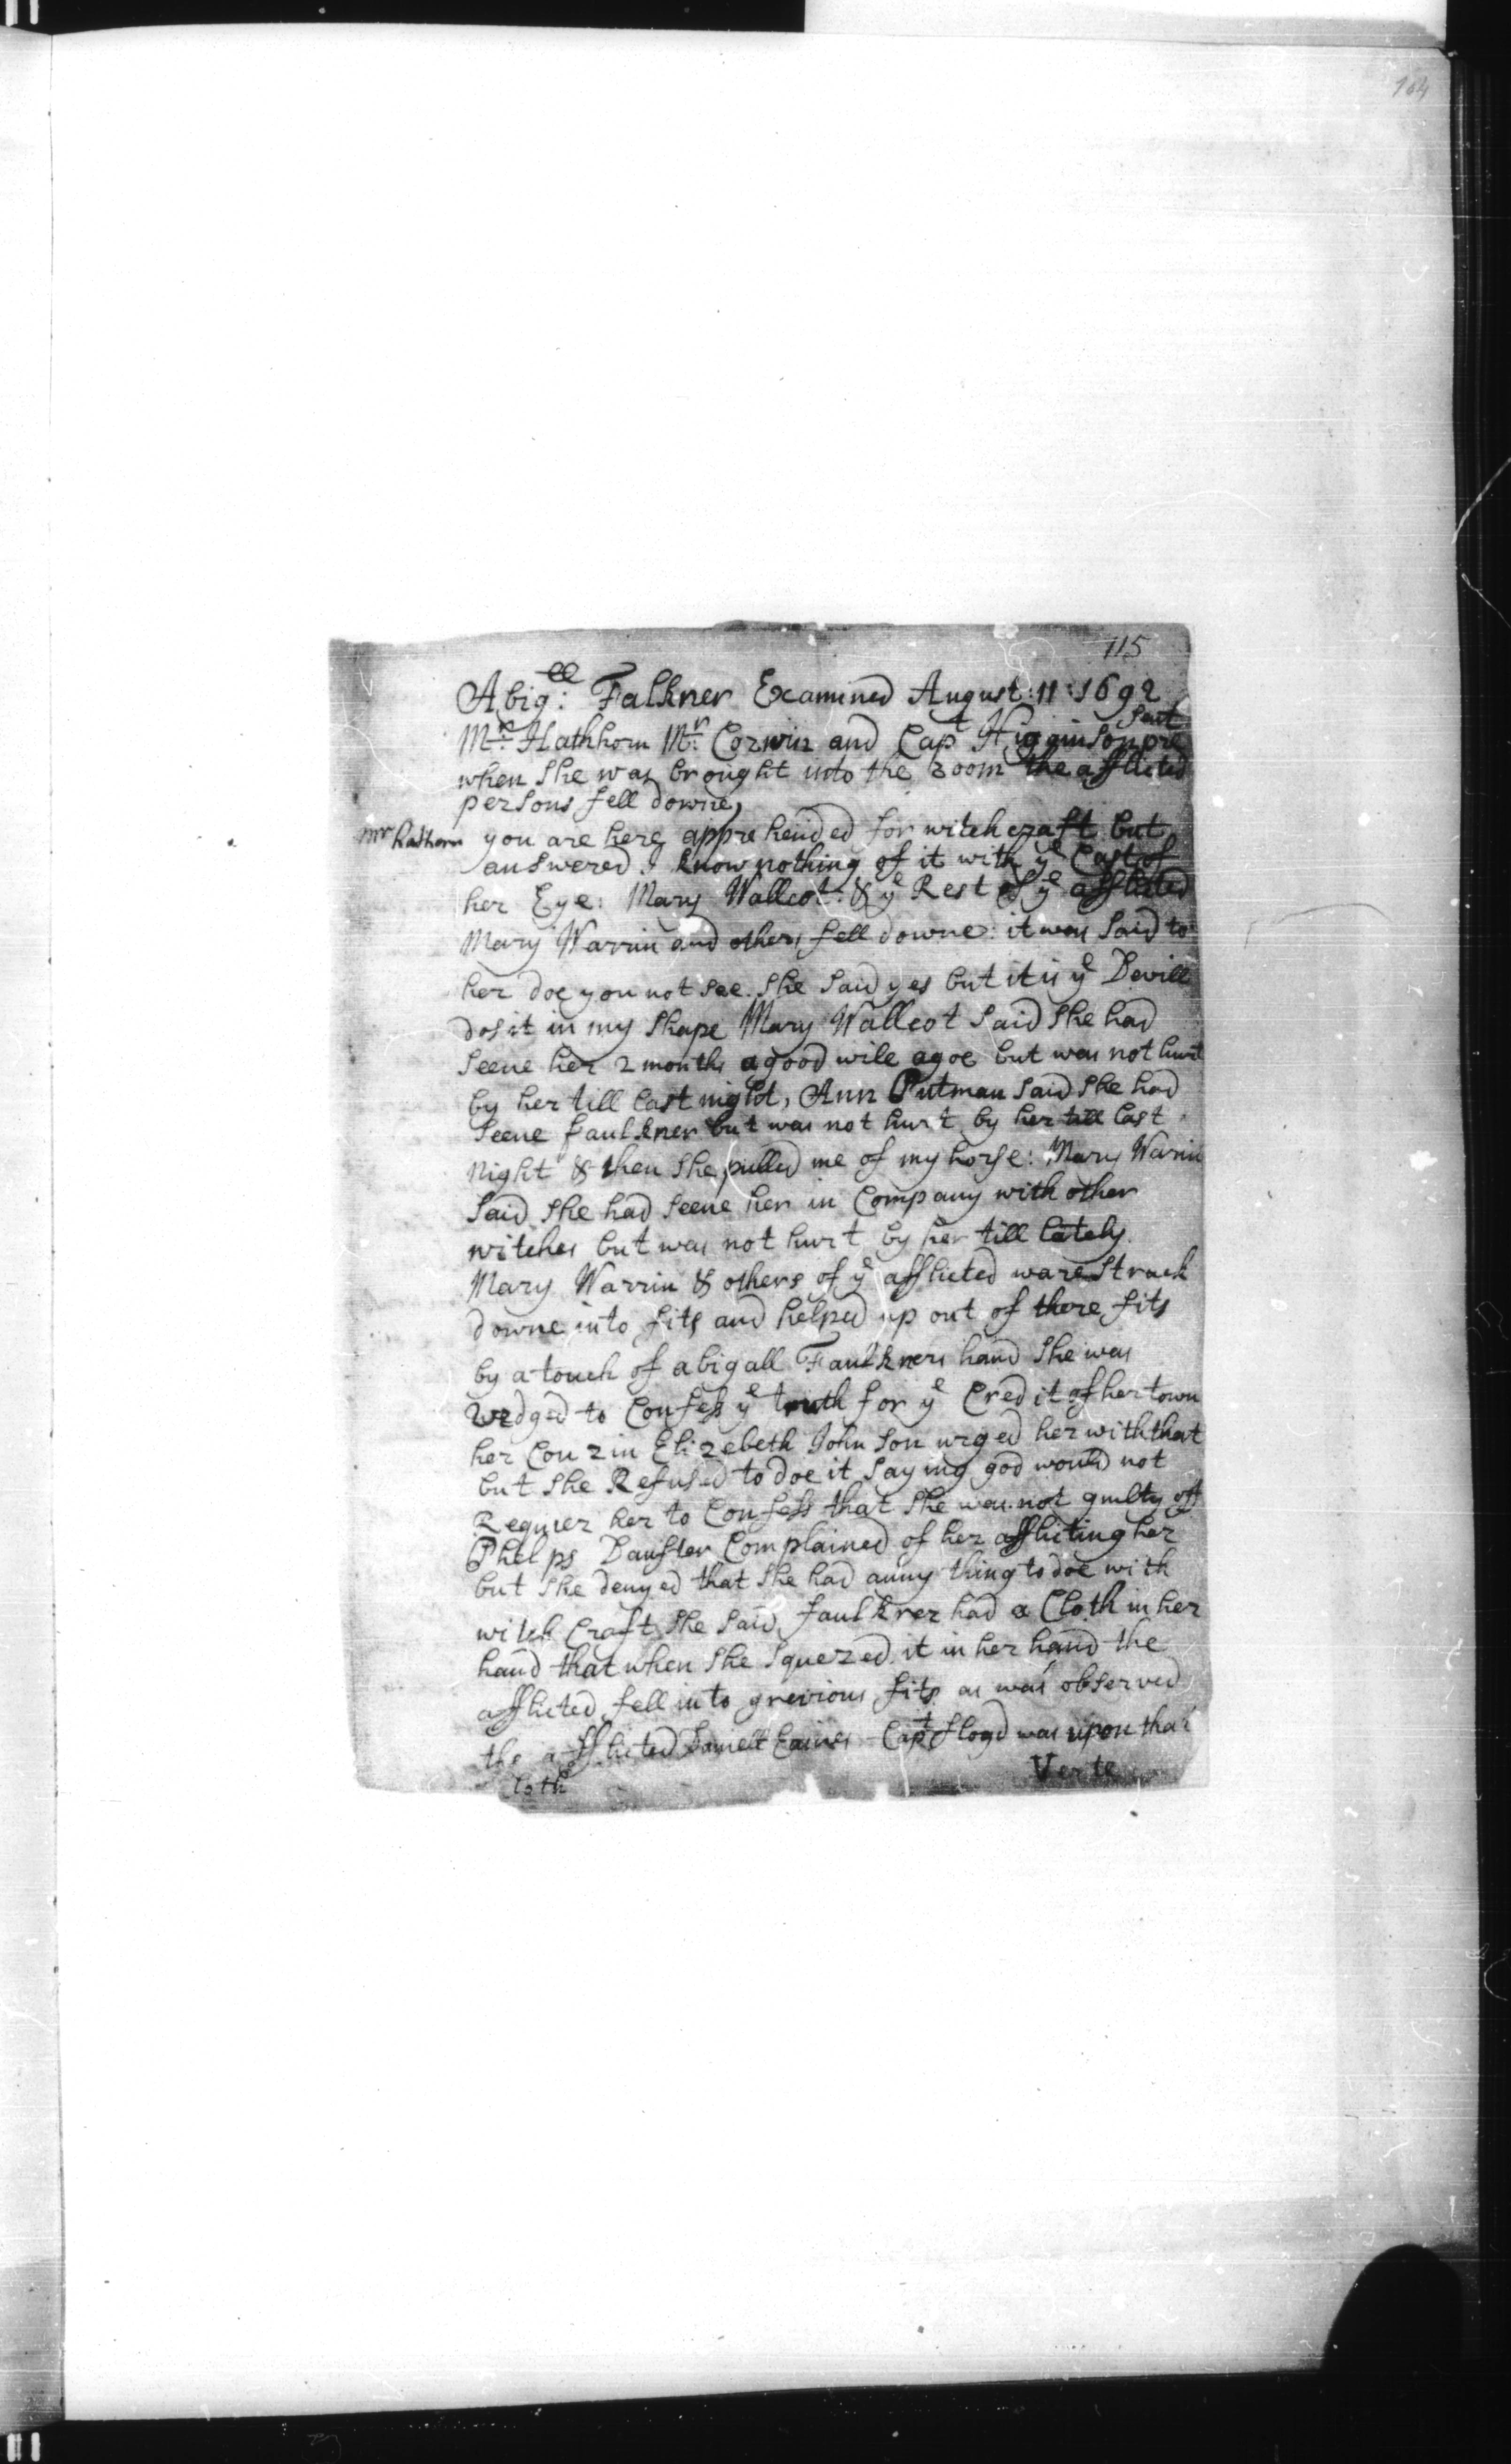 104
115
Abig:ll Falkner Examined August: 11: 1692
Mr. Hathhorn Mr. Corwin and Capt Higginson pre
sent
when she was brought into the room the afflicted
persons fell downe,
mr hathorn you are here apprehended for witchcraft but
answered. I know nothing of it with ye Cast of
her Eye: Mary Wallcot: & ye Rest of ye afflicted
Mary Warrin and others fell downe: it was said to
her doe you not see. she said yes but it is ye Devill
dos it in my shape Mary Wallcot said she had
seene her 2 months a good wile agoe but was not hurt
by her till last night, Ann Putman said she had
seene faulkner but was not hurt by her till last
night & then she pulled me of my horse: Mary Warrin
said she had seene her in Company with other
witches but was not hurt by her till lately.
Mary Warrin & others of ye afflicted ware struck
downe into fits and helped up out of there fits
by a touch of abigall Faulkners hand she was
urdged to Confess ye truth for ye Credit of her town
her Couzin Elizebeth Johnson urged her with that
but she Refused to doe it saying god would not
Requier her to Confess that she was not guilty off
Phelps Daufter Complained of her afflicting her
but she denyed that she had anny thing to doe with
witch Craft she said faulkner had a Cloth in her
hand that when she squezed it in her hand the
afflicted fell into grevious fits as was observed
the afflicted Daniell Eames Capt floyd was upon that
Cloth
Verte